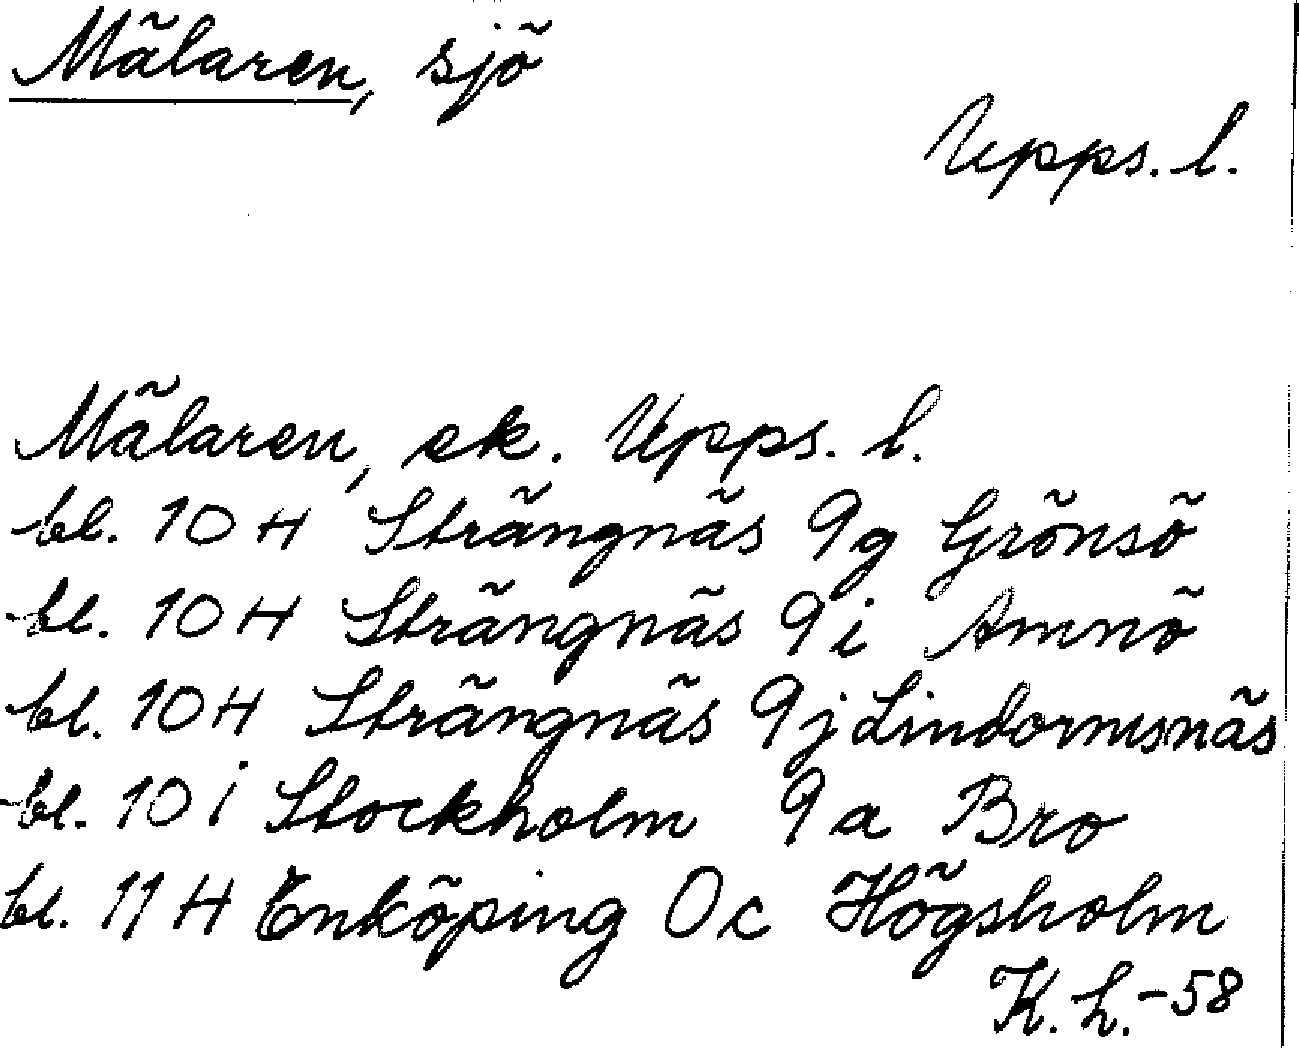 Mälaren, sjö
Upps. l.
Mälaren, ek. Upps. l.
bl. 10 H Strängnäs 9g Grönsö
bl. 10 H Strängnäs 9i Amnö
bl. 10 H Strängnäs 9j Lindormsnäs
bl. 10 i Stockholm 9a Bro
bl. 11 H Enköping 0c Högsholm
K. L. -58